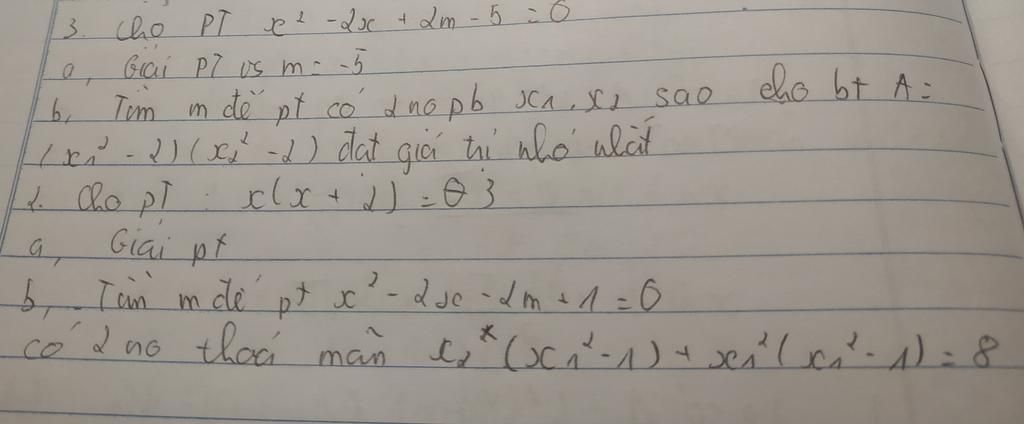 3. Cho PT x² - 2x + 2m - 5 = 0
a, Giải PT vs m = -5
b, Tìm m để pt có 2 no pb x₁, x₂ sao cho bt A =
(x₁² - 2)(x₂² - 2) đạt giá trị nhỏ nhất
2. Cho PT : x(x + 2) = 3
a, Giải pt
b, Tìm m để pt x² - 2x - 2m + 1 = 0
có 2 no thoả mãn x₂* (x₁² - 1) + x₁² (x₁² - 1) = 8